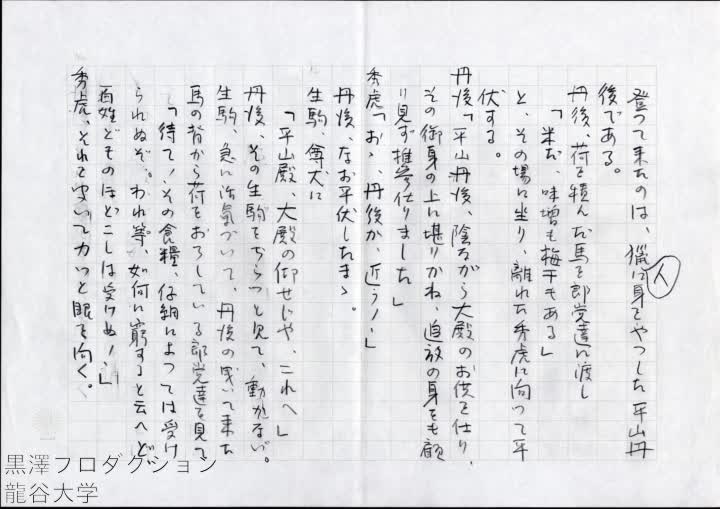 登って来たのは、猟人に身をやつした平山丹
後である。
丹後、荷を積んだ馬を郎党達に渡し
「米だ、味噌も梅干もある」
と、その場に坐り、離れた秀虎に向って平
伏する。
丹後「平山丹後、陰ながら大殿のお供を仕り、
その御身の上に堪りかね、追放の身をも顧
り見ず推参仕りました」
秀虎「おゝ、丹後か、近う〱」
丹後、なお平伏したまゝ。
生駒、尊大に
「平山殿、大殿の仰せじや、これへ」
丹後、その生駒をぢろっと見て、動かない。
生駒、急に活気づいて、丹後の曳いて来た
馬の背から荷をおろしている郎党達を見て
「待て！その食糧、仔細によっては受け
られぬぞ。われ等、如何に窮すと云へど、
百姓どものほどこしは受けぬ！」
秀虎、それを聞いてカッと眼を向く。
黒澤プロダクション
龍谷大学